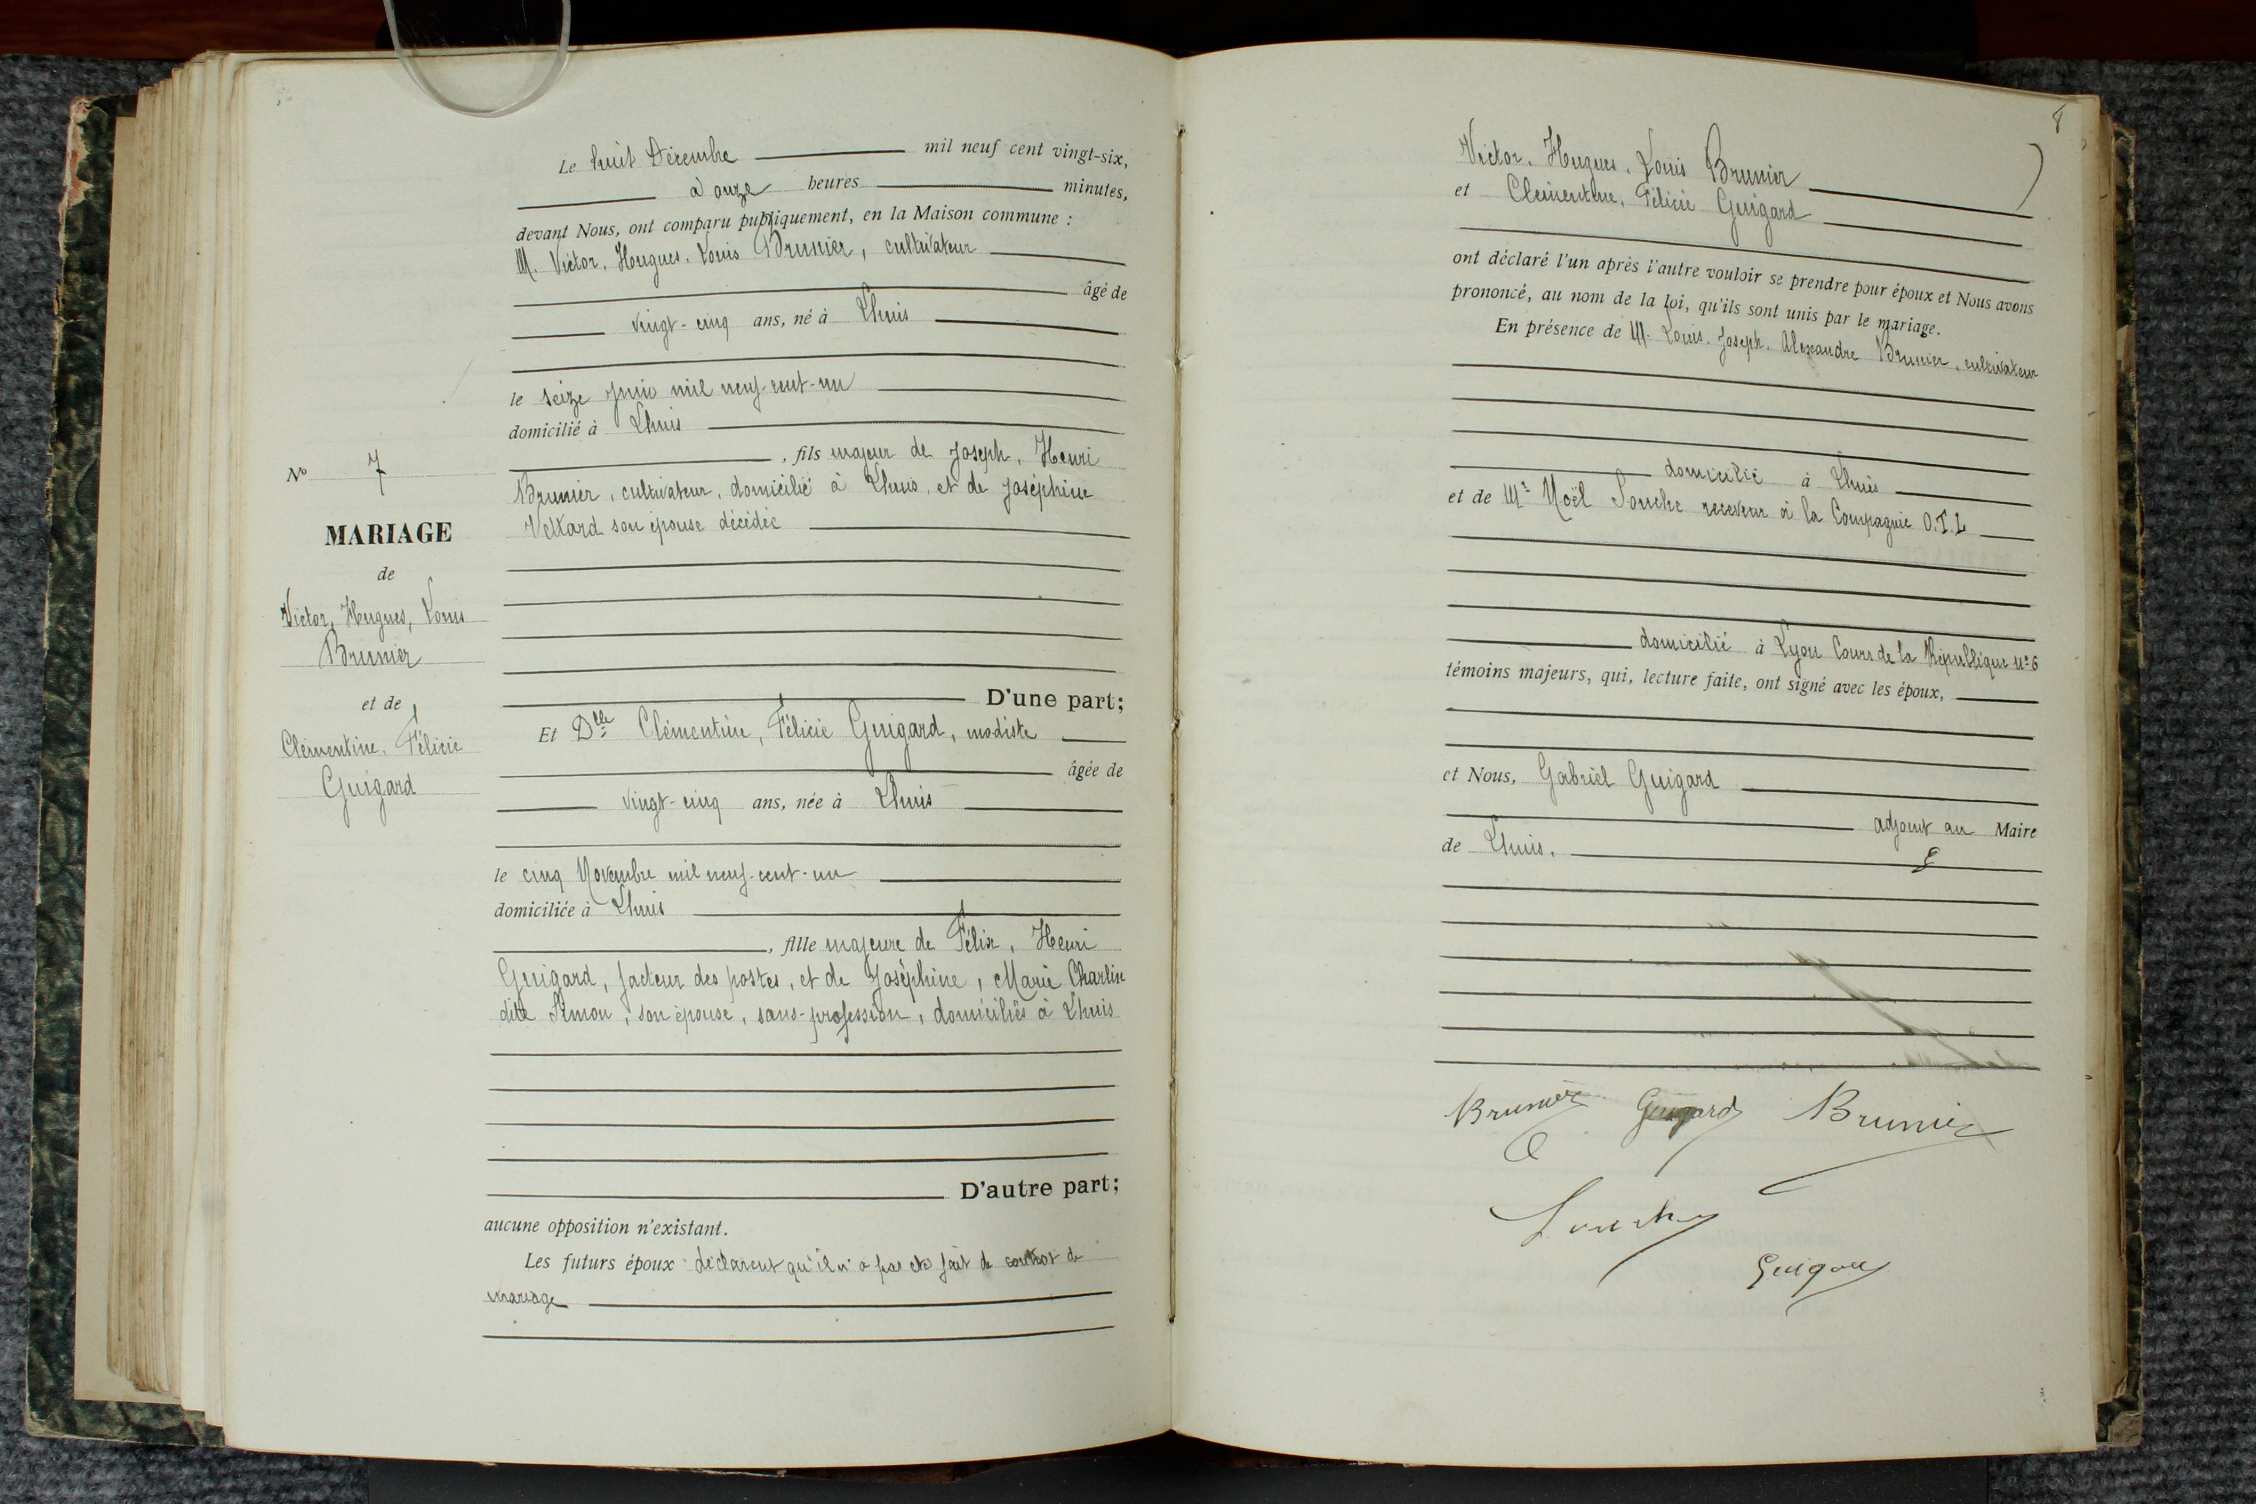 Le huit Décembre mil neuf cent vingt-six,
à onze heures minutes,
devant Nous, ont comparu publiquement, en la Maison commune :
M. Victor, Hugues, Louis Brunier, cultivateur
âgé de
vingt-cinq ans, né à Lhuis
le seize juin mil neuf-cent-un
domicilié à Lhuis
, fils majeur de Joseph, Henri
Brunier, cultivateur, domicilié à Lhuis, et de Joséphine
Vettard son épouse décédée
D'une part;
Et Dlle Clémentine, Félicie Guigard, modiste
âgée de
vingt-cinq ans, née à Lhuis
le cinq Novembre mil neuf-cent-un
domiciliée à Lhuis
, fille majeure de Félix, Henri
Guigard, facteur des postes, et de Joséphine, Marie Charlin
dite Simon, son épouse, sans-profession, domiciliés à Lhuis
D'autre part;
aucune opposition n'existant.
Les futurs époux déclarent qu'il n'a pas été fait de contrat de
mariage
No 7
MARIAGE
de
Victor, Hugues, Louis
Brunier
et de
Clémentine, Félicie
Guigard
8
Victor, Hugues, Louis Brunier
et Clémentine, Félicie Guigard
ont déclaré l'un après l'autre vouloir se prendre pour époux et Nous avons
prononcé, au nom de la loi, qu'ils sont unis par le mariage.
En présence de M. Louis, Joseph, Alexandre Brunier, cultivateur
domicilié à Lhuis
et de Mr Noël Souche receveur à la Compagnie O.T.L
domicilié à Lyon Cours de la République No 6
témoins majeurs, qui, lecture faite, ont signé avec les époux,
et Nous, Gabriel Guigard
adjoint au Maire
de Lhuis.
Brunier Guigard Brunier
Souche
Guigard